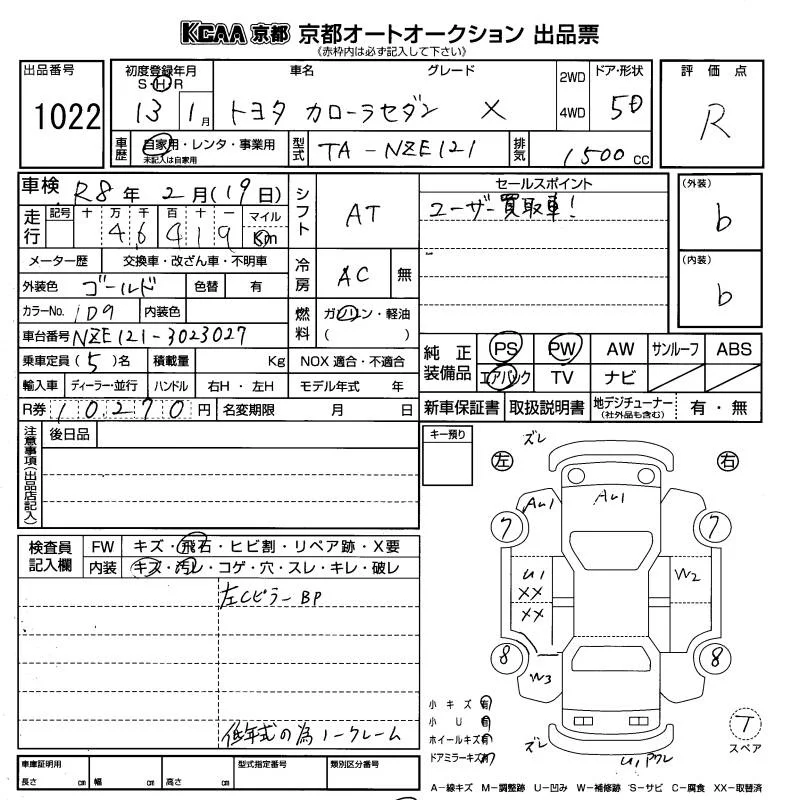 KCAA 京都 京都オートオークション 出品票
《赤枠内は必ず記入して下さい》
出品番号
1022
初度登録年月
S・H・R
13 1月
車名
グレード
トヨタ カローラセダン X
2WD
4WD
ドア・形状
5D
評価点
R
車歴
自家用・レンタ・事業用
未記入は自家用
型式
TA-NZE121
排気
1500 CC
車検 R8年 2月(19日)
シフト
AT
走行
記号 十 万 千 百 十 一 マイル
4 6 4 1 9 Km
メーター歴 交換車・改ざん車・不明車
冷房
AC 無
外装色 ゴールド 色替 有
カラーNo. 1D9 内装色
燃料
ガソリン・軽油
( )
車台番号 NZE121-3023027
乗車定員(5)名 積載量 Kg NOX適合・不適合
輸入車 ディーラー・並行 ハンドル 右H・左H モデル年式 年
R券 10270円 名変期限 月 日
セールスポイント
ユーザー買取車!
(外装)
b
(内装)
b
純正装備品
PS PW AW サンルーフ ABS
エアバック TV ナビ
新車保証書 取扱説明書 地デジチューナー(社外品も含む) 有・無
注意事項(出品店記入)
後日品
キー預り
検査員記入欄
FW キズ・飛石・ヒビ割・リペア跡・X要
内装 キズ・汚レ・コゲ・穴・スレ・キレ・破レ
左Cピラー BP
低年式の為ノークレーム
ズレ
左 右
AU1 AU1
7 7
U1 W2
XX
XX
8 8
W3
小キズ 有
小 U 有
ホイールキズ 有
ドアミラーキズ 有
ズレ
U1,ワレ
T
スペア
車庫証明用
長さ cm 幅 cm 高さ cm
型式指定番号
類別区分番号
A-線キズ M-調整跡 U-凹み W-補修跡 S-サビ C-腐食 XX-取替済